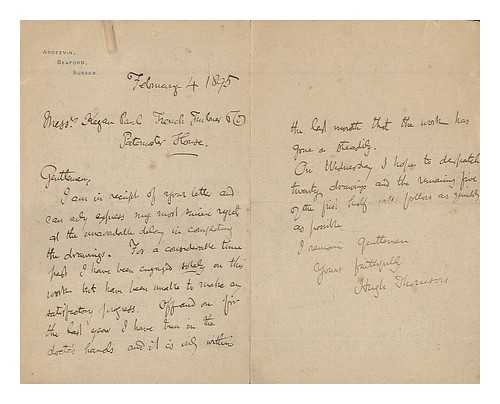 SEAFORD,
SUSSEX.
February 4 1895
Messrs Kegan Paul Trench Trubner & Co
Paternoster House.
Gentlemen,
I am in receipt of your letter and
can only express my most sincere regret
at the unavoidable delay in completing
the drawings. For a considerable time
past I have been engaged solely on this
work but have been unable to make any
satisfactory progress. Off and on for
the last year I have been in the
doctor's hands and it is only within
the last month that the work has
gone on steadily.
On Wednesday I hope to despatch
twenty drawings and the remaining five
of the first half will follow as quickly
as possible
I remain Gentlemen
Yours faithfully
Hugh Thomson